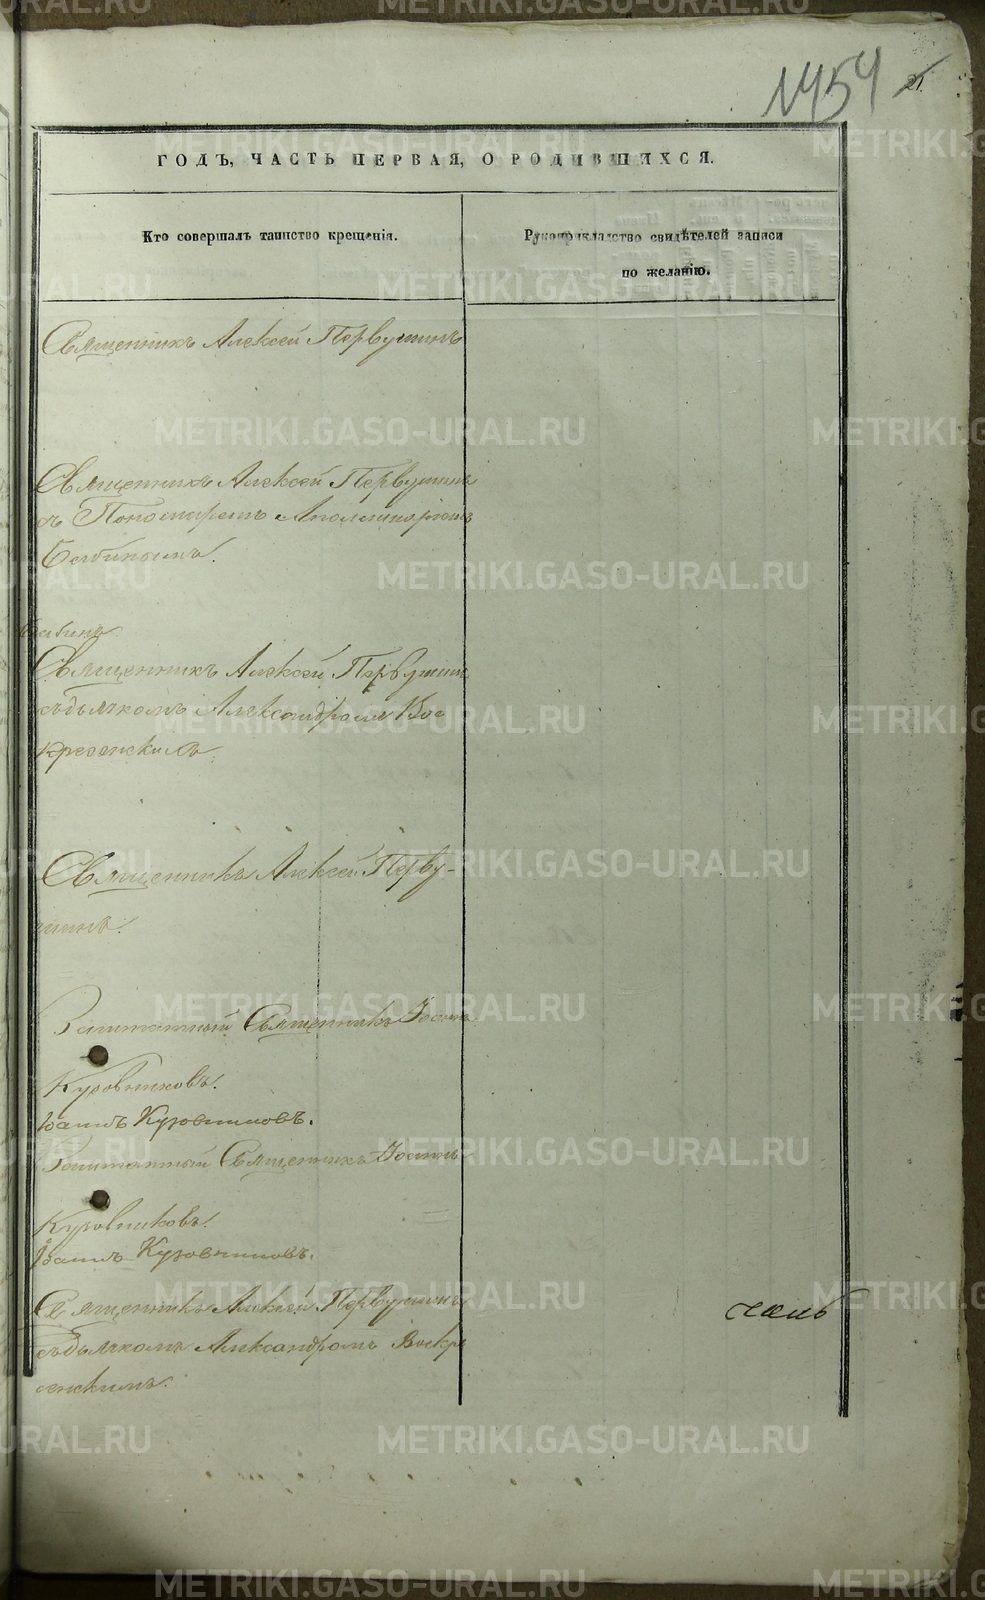 1454 21.
ГОДЪ, ЧАСТЬ ПЕРВАЯ, О РОДИВШИХСЯ.
Кто совершалъ таинство крещенія.
Рукоприкладство свидѣтелей записи
по желанію.
Священникъ Алексей Первушинъ
Священникъ Алексей Первушинъ
съ Пономаремъ Аполлинаріемъ
Бабинымъ.
Бабинъ
Священникъ Алексей Первушинъ
съ дьячкомъ Александромъ Вос
кресенскимъ.
Священникъ Алексей Перву-
шинъ.
Заштатный Священникъ Іоаннъ
Кузовниковъ.
Іоаннъ Кузовниковъ.
Заштатный Священникъ Іоаннъ
Кузовниковъ.
Іоаннъ Кузовниковъ.
Священникъ Алексей Первушинъ
съ дьячкомъ Александромъ Воскре
сенскимъ.
METRIKI.GASO-URAL.RU